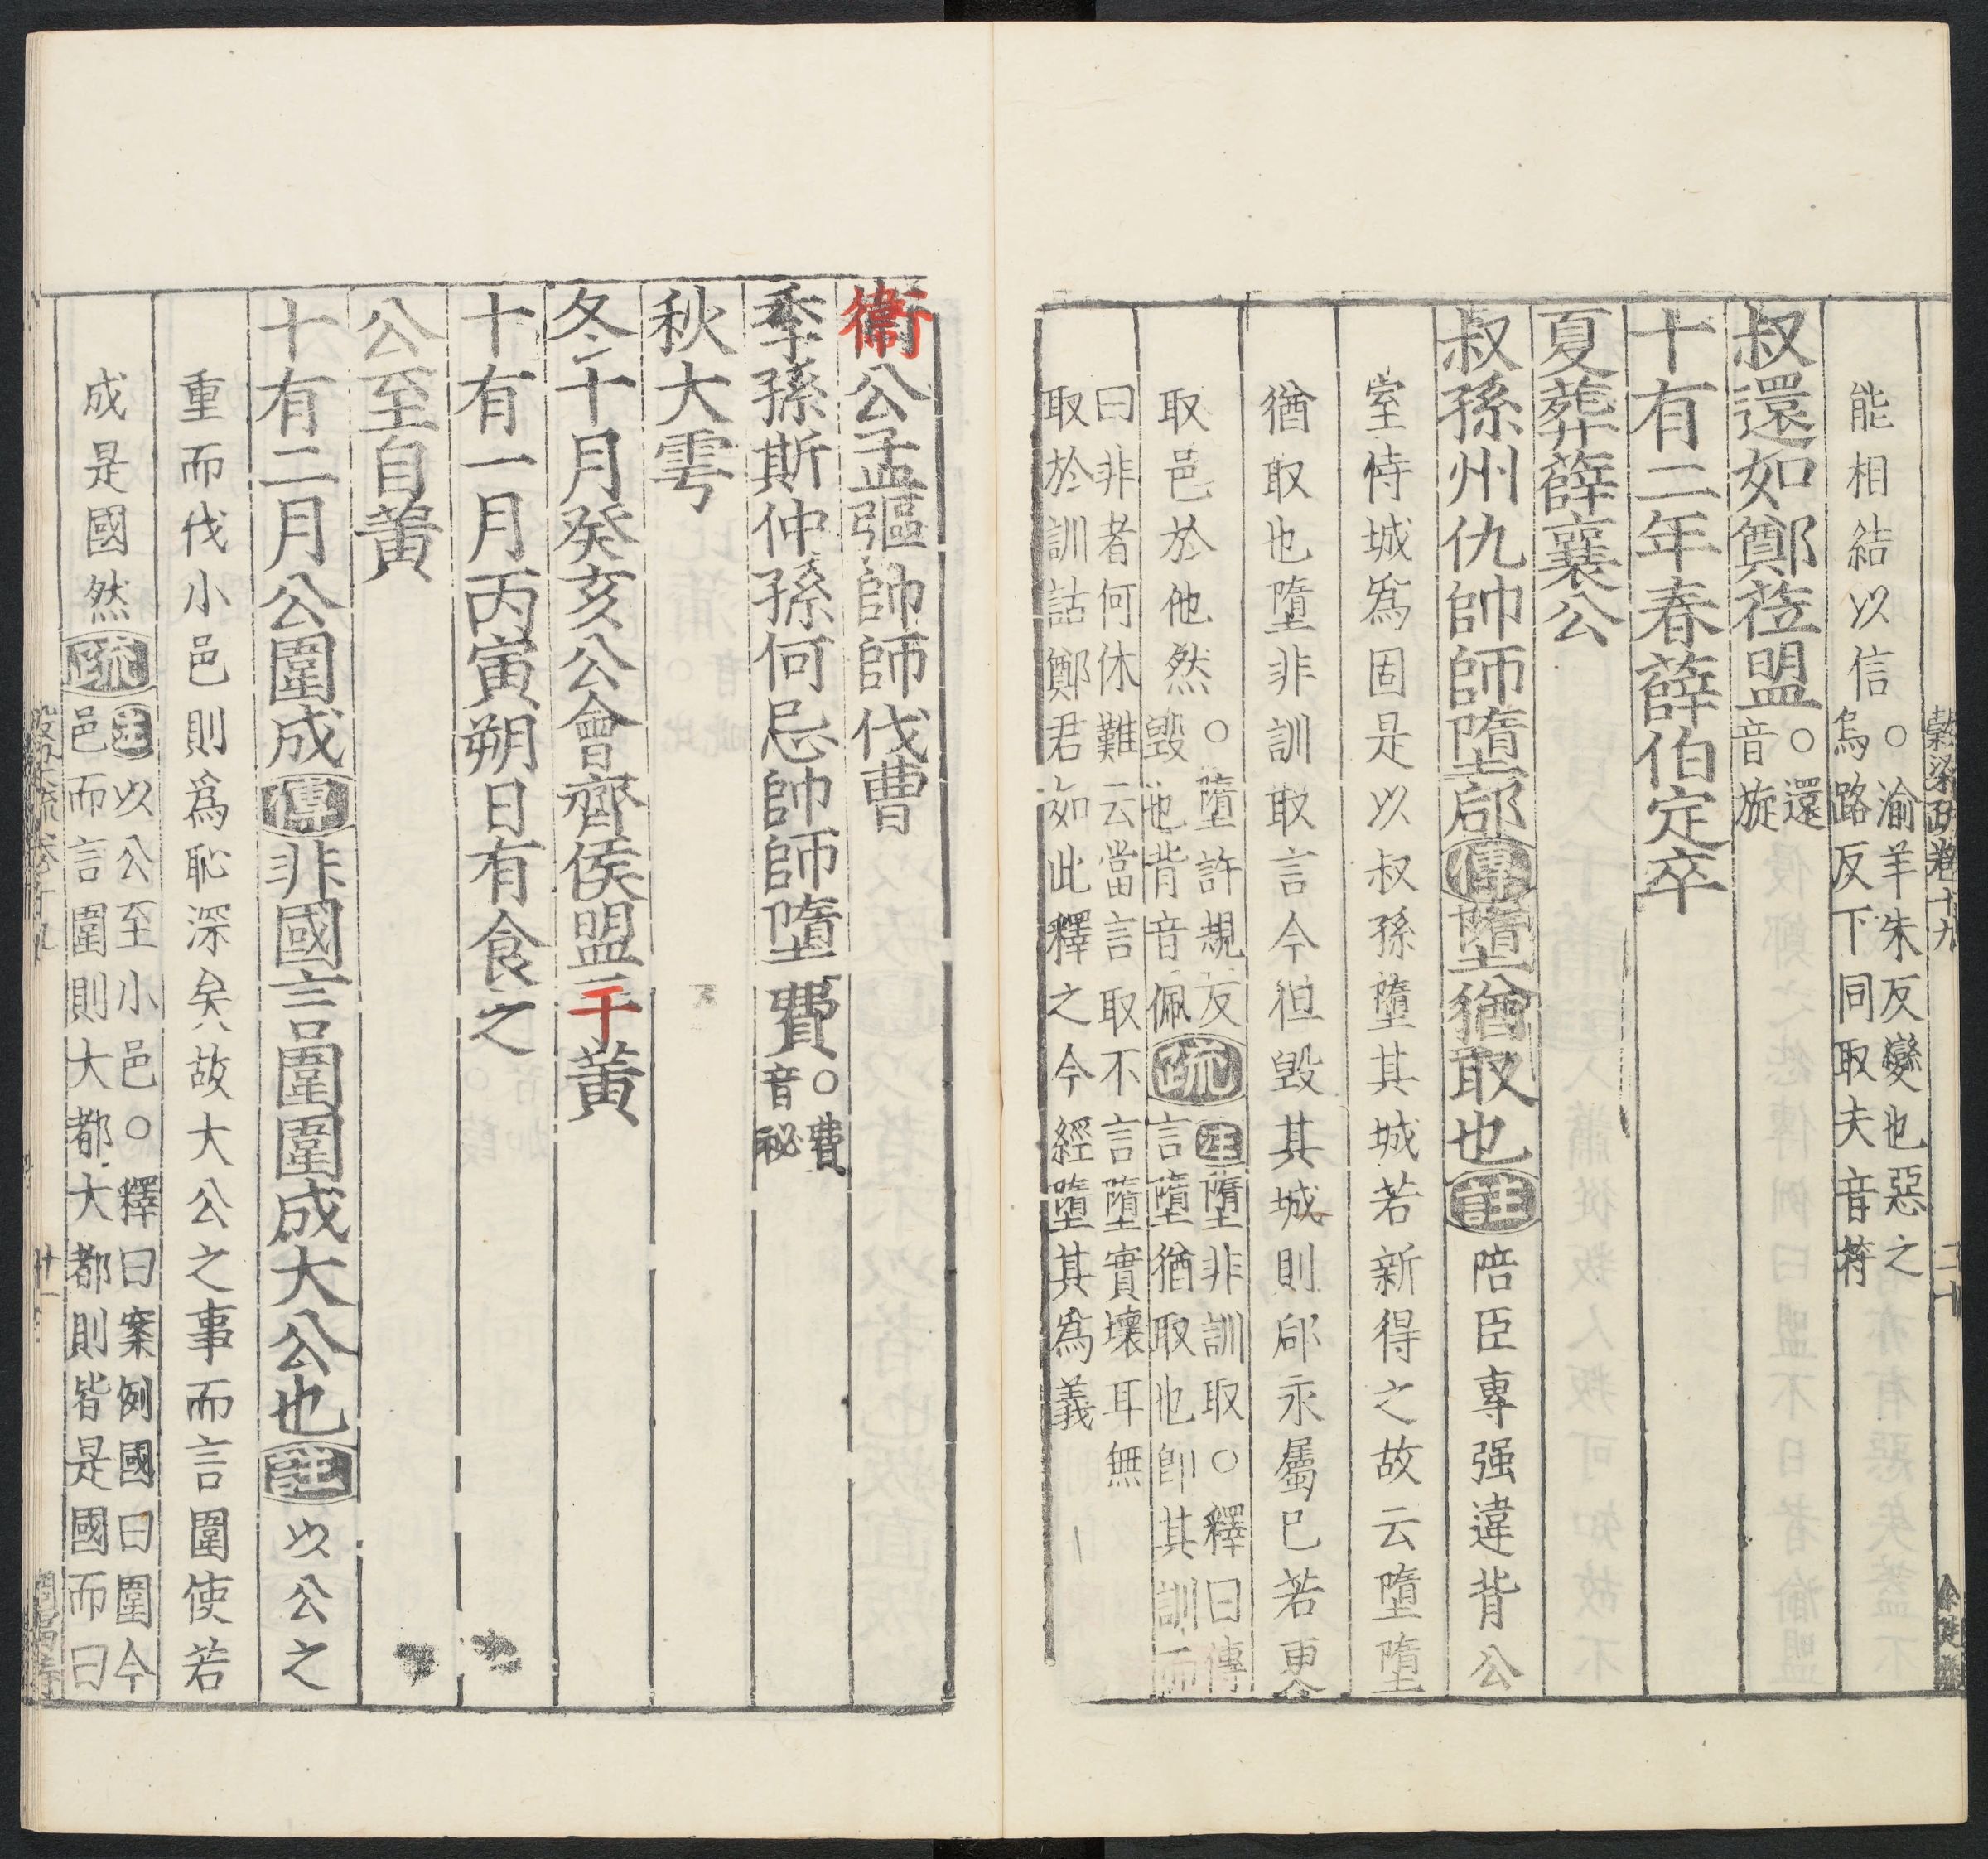 穀梁疏卷十九
能相結以信○渝羊朱反變也惡之
烏路反下同取夫音符
叔還如鄭蒞盟○還
音旋
十有二年春薛伯定卒
夏葬薛襄公
叔孫州仇帥師墮郈傳墮猶取也註陪臣專强違背公
室恃城爲固是以叔孫墮其城若新得之故云墮墮
猶取也墮非訓取言今但毀其城則郈永屬已若更
取邑於他然○墮許規反
毀也背音佩
疏註墮非訓取○釋曰傳
言墮猶取也即其訓而
曰非者何休難云當言取不言墮實壞耳無
取於訓詁鄭君如此釋之今經墮其爲義
衞公孟彄帥師伐曹
季孫斯仲孫何忌帥師墮費○費
音祕
秋大雩
冬十月癸亥公會齊侯盟于黃
十有一月丙寅朔日有食之
公至自黃
十有二月公圍成傳非國言圍圍成大公也註以公之
重而伐小邑則爲恥深矣故大公之事而言圍使若
成是國然疏註以公至小邑○釋曰案例國曰圍今
邑而言圍則大都大都則皆是國而曰